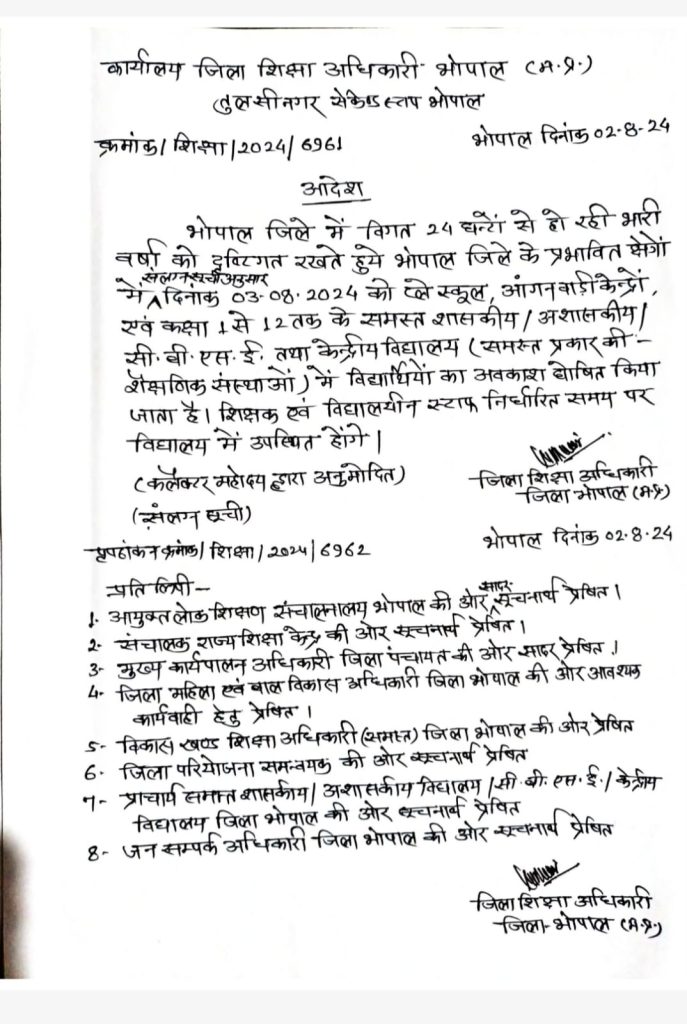 कार्यालय जिला शिक्षा अधिकारी भोपाल (म.प्र.)
तुलसीनगर सेकेण्ड स्टाप भोपाल
क्रमांक/ शिक्षा/2024/6961
भोपाल दिनांक 02.8.24
आदेश
भोपाल जिले में विगत 24 घन्टों से हो रही भारी
वर्षा को दृष्टिगत रखते हुये भोपाल जिले के प्रभावित क्षेत्रों
में संलग्न सूची अनुसार दिनांक 03.08.2024 को प्ले स्कूल, आंगनवाड़ी केन्द्रों,
एवं कक्षा 1 से 12 तक के समस्त शासकीय/अशासकीय/
सी.बी.एस.ई. तथा केन्द्रीय विद्यालय (समस्त प्रकार की -
शैक्षणिक संस्थाओं) में विद्यार्थियों का अवकाश घोषित किया
जाता है। शिक्षक एवं विद्यालयीन स्टाफ निर्धारित समय पर
विद्यालय में उपस्थित होंगे।
(कलेक्टर महोदय द्वारा अनुमोदित)
(संलग्न सूची)
जिला शिक्षा अधिकारी
जिला भोपाल (म.प्र)
पृष्ठांकन क्रमांक/ शिक्षा/2024/6962
भोपाल दिनांक 02.8.24
प्रतिलिपी-
1. आयुक्त लोक शिक्षण संचालनालय भोपाल की ओर सादर सूचनार्थ प्रेषित।
2- संचालक राज्य शिक्षा केन्द्र की ओर सूचनार्थ प्रेषित।
3- मुख्य कार्यपालन अधिकारी जिला पंचायत की ओर सादर प्रेषित।
4- जिला महिला एवं बाल विकास अधिकारी जिला भोपाल की ओर आवश्यक
कार्यवाही हेतु प्रेषित।
5- विकास खण्ड शिक्षा अधिकारी (समस्त) जिला भोपाल की ओर प्रेषित
6- जिला परियोजना समन्वयक की ओर सूचनार्थ प्रेषित
7- प्राचार्य समस्त शासकीय/अशासकीय विद्यालय/सी.बी.एस.ई./केन्द्रीय
विद्यालय जिला भोपाल की ओर सूचनार्थ प्रेषित
8- जन सम्पर्क अधिकारी जिला भोपाल की ओर सूचनार्थ प्रेषित
जिला शिक्षा अधिकारी
जिला-भोपाल (म.प्र.)